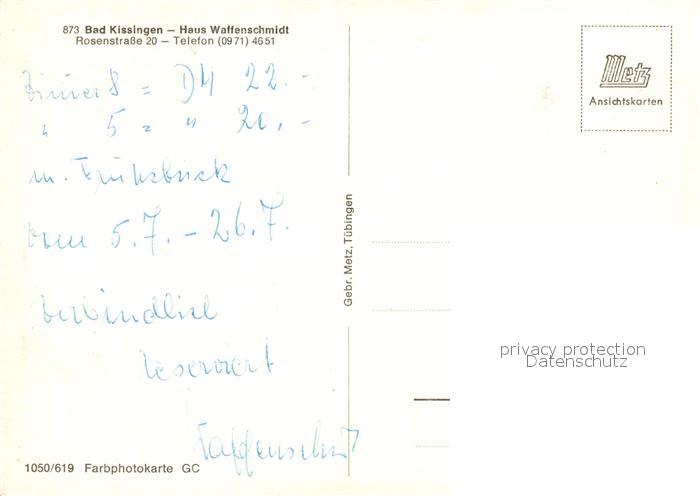 873 Bad Kissingen — Haus Waffenschmidt
Rosenstraße 20 — Telefon (0971) 4651
Metz
Ansichtskarten
Zimmer 8 = DM 22.-
" 5 = " 20.-
m. Frühstück
vom 5.7. - 26.7.
verbindlich
reserviert
Waffenschmidt
Gebr. Metz, Tübingen
privacy protection
Datenschutz
1050/619 Farbphotokarte GC